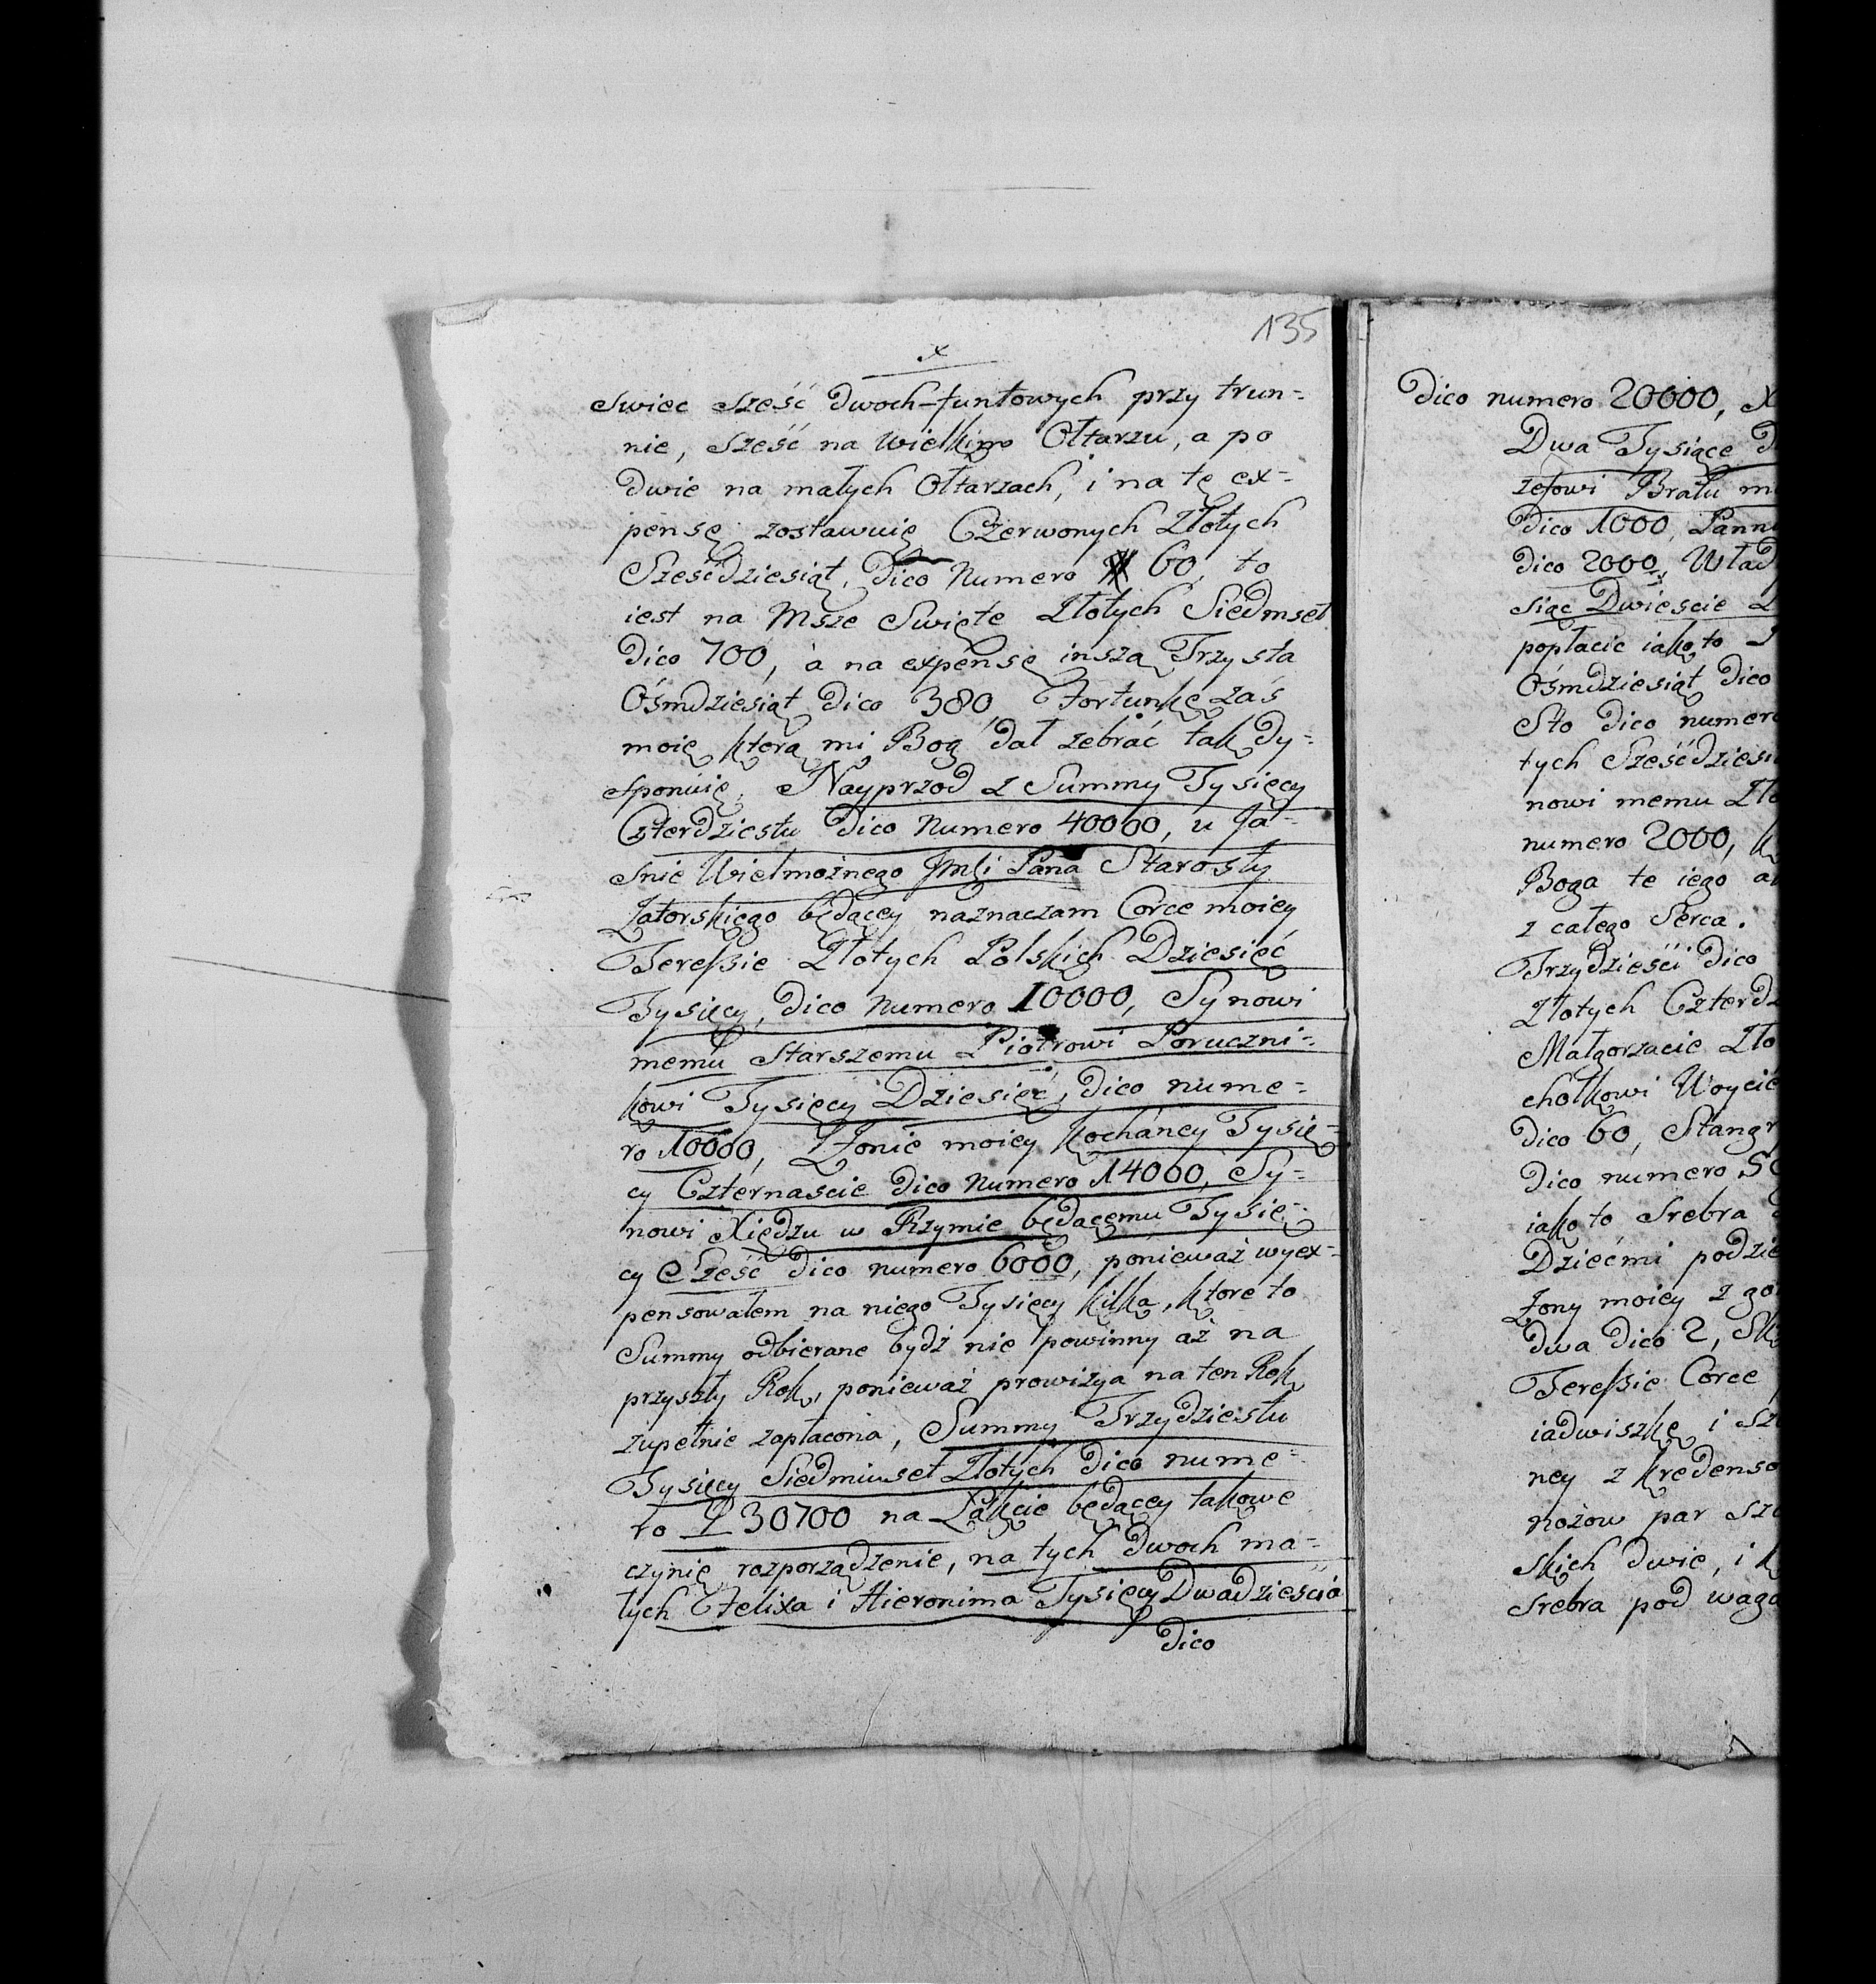 135
x
swiec sześć dwoch-funtowych przy trun=
nie, sześć na wielkim Ołtarzu, a po
dwie na małych Ołtarzach, i na tę ex=
pensę zostawuię Czerwonych Złotych
Sześćdziesiąt, dico Numero 60, to
iest na Msze Swięte Złotych Siedmset
dico 700, a na expensę inszą Trzysta
Ośmdziesiąt dico 380 Fortunkę zaś
moię ktorą mi Bog dał zebrać tak dy=
sponuię, Nayprzod z Summy Tysięcy
Czterdziestu dico Numero 40000, u Ja=
snie Wielmożnego Jmsi Pana Starosty
Zatorskiego będącey naznaczam Corce moiey
Tereßie Złotych Polskich Dziesięć
Tysięcy, dico Numero 10000, Synowi
memu Starszemu Piotrowi Poruczni=
kowi Tysięcy Dziesięć, dico nume=
ro 10000, Żonie moiey kochaney Tysię=
cy Czternascie dico Numero 14000, Sy=
nowi Xiędzu w Rzymie będącemu Tysię=
cy Sześć dico numero 6000, ponieważ wyex=
pensowałem na niego Tysięcy kilka, ktore to
Summy odbierane bydź nie powinny aż na
przyszły Rok, ponieważ prowizya na ten Rok
zupełnie zapłacona, Summy Trzydziestu
Tysięcy Siedmiuset Złotych dico nume=
ro 30700 na Łakcie będącey takowe
czynię rozporządzenie, na tych dwoch ma=
łych Felixa i Hieronima Tysięcy Dwadzieścia
dico
dico numero 20000, X
Dwa Tysiące D
zefowi Bratu m
dico 1000, Pann
dico 2000, Wład
siąc Dwieście Z
popłacic iako to
Ośmdziesiąt dico
Sto dico numero
tych Sześćdziesi
nowi memu Zło
numero 2000, k
Boga te iego a
z całego Serca.
Trzydzieści dico
Złotych Czterdz
Małgorzacie Zło
chołkowi Woycie
dico 60, Stangr
dico numero 5
iako to Srebra
Dziećmi podzie
Żony moiey z go
dwa dico 2, Sk
Tereßie Corce
iadwiszkę i Sz
ney z kredenso
nożow par sze
skich dwie, i k
Srebra pod waga